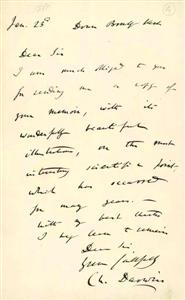 Jan. 23d Down Beckenham Kent
Dear Sir
I am much obliged to you
for sending me a copy of
your memoir, with its
wonderfully beautiful
illustrations, on the most
interesting scientific point
which has occurred
for many years. —
With my best thanks
I beg leave to remain
Dear Sir
Yours faithfully
Ch. Darwin